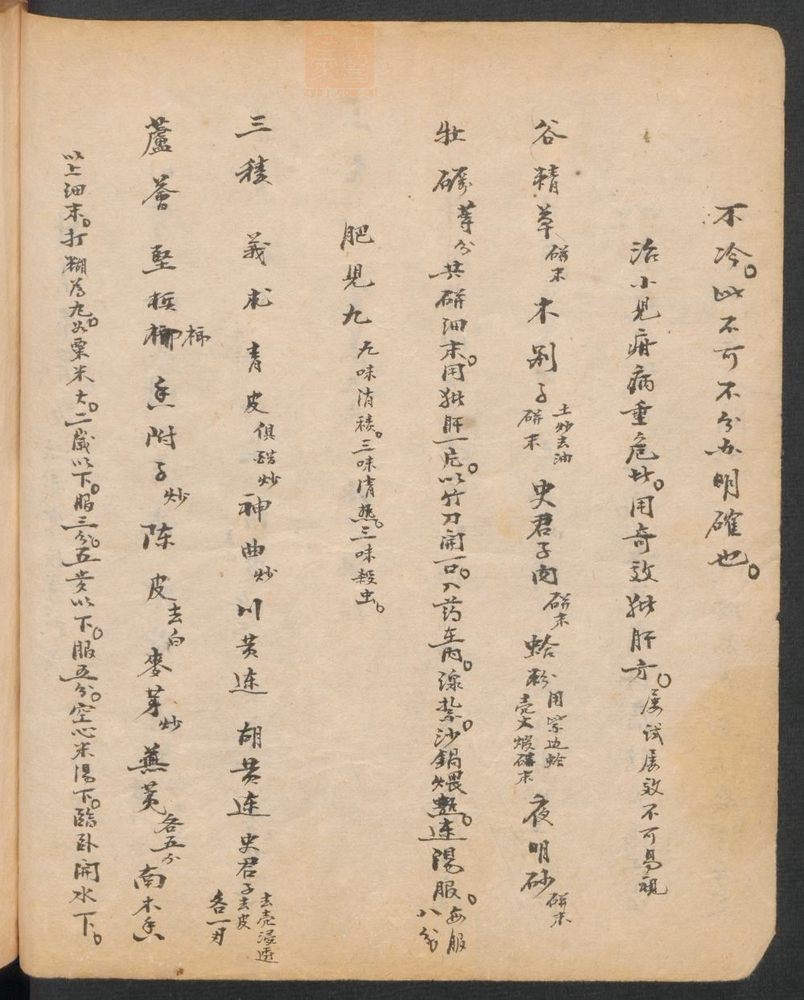 不冷。此不可不分办明確也。
治小児疳病重危世。用奇效猪肝方。屡试屡效不可易視
谷精草研末 木别子土炒去油研末 史君子肉研末 蛤粉用紫边蛤壳火煅研末 夜明砂研末
牡礪等分共研細末。用猪肝一片。以竹刀開口。入药在内。線紮。沙鍋煨熟。連湯服。每服八分
肥兒九 九味消積。三味清熱。三味殺虫。
三稜 莪朮 青皮俱醋炒 神曲炒 川黄连 胡黄连 史君子去壳浸透去皮各一刄
蘆薈 堅槟榔榔 香附子炒 陈皮去白 麥芽炒 蕪荑各五分 南木香
以上細末。打糊為九。如粟米大。二歲以下。服三分。五岁以下。服五分。空心米湯下。臨卧開水下。